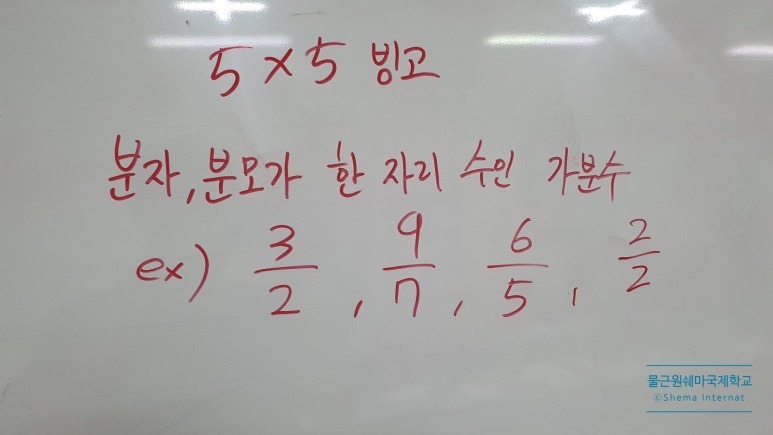 5×5 빙고
분자, 분모가 한 자리 수인 가분수
ex) 3/2, 9/7, 6/5, 2/2
물근원쉐마국제학교
©Shema Internat